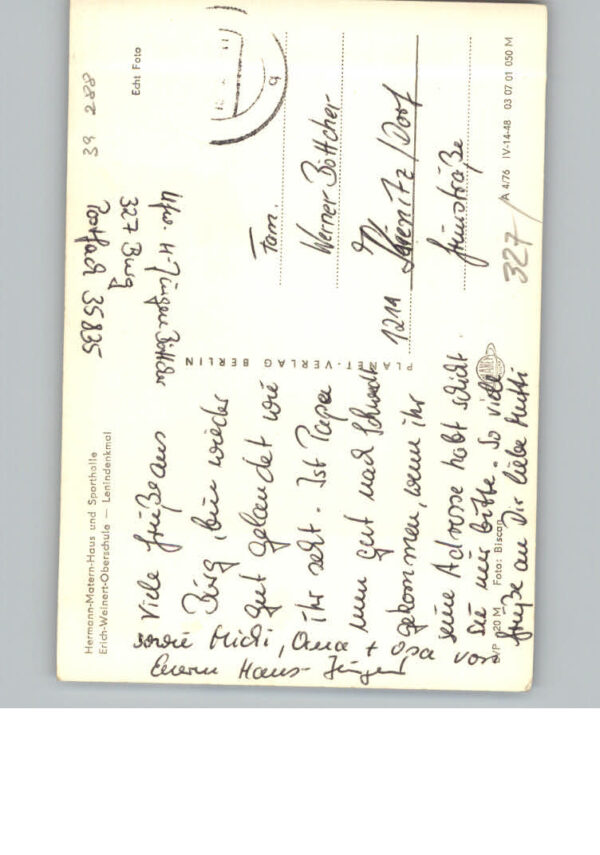 Hermann-Matern-Haus und Sporthalle
Erich-Weinert-Oberschule — Lenindenkmal
Echt Foto
39 288
Ufw. H-Jürgen Böttcher
327 Burg
Postfach 35835
Viele Grüße aus
Burg, bin wieder
gut gelandet wie
ihr seht. Ist Papa
nun gut nach Schwedt
gekommen, wenn ihr
seine Adresse habt schickt
sie mir bitte. So viele
Grüße an Dir liebe Mutti
sowie Michi, Oma + Opa von
Euerm Hans-Jürgen
PLANET-VERLAG BERLIN
Fam.
Werner Böttcher
1211
/Dorf
straße
327/
V/P 20 M Foto: Biscan
A 4/76 IV-14-48 03 07 01 050 M